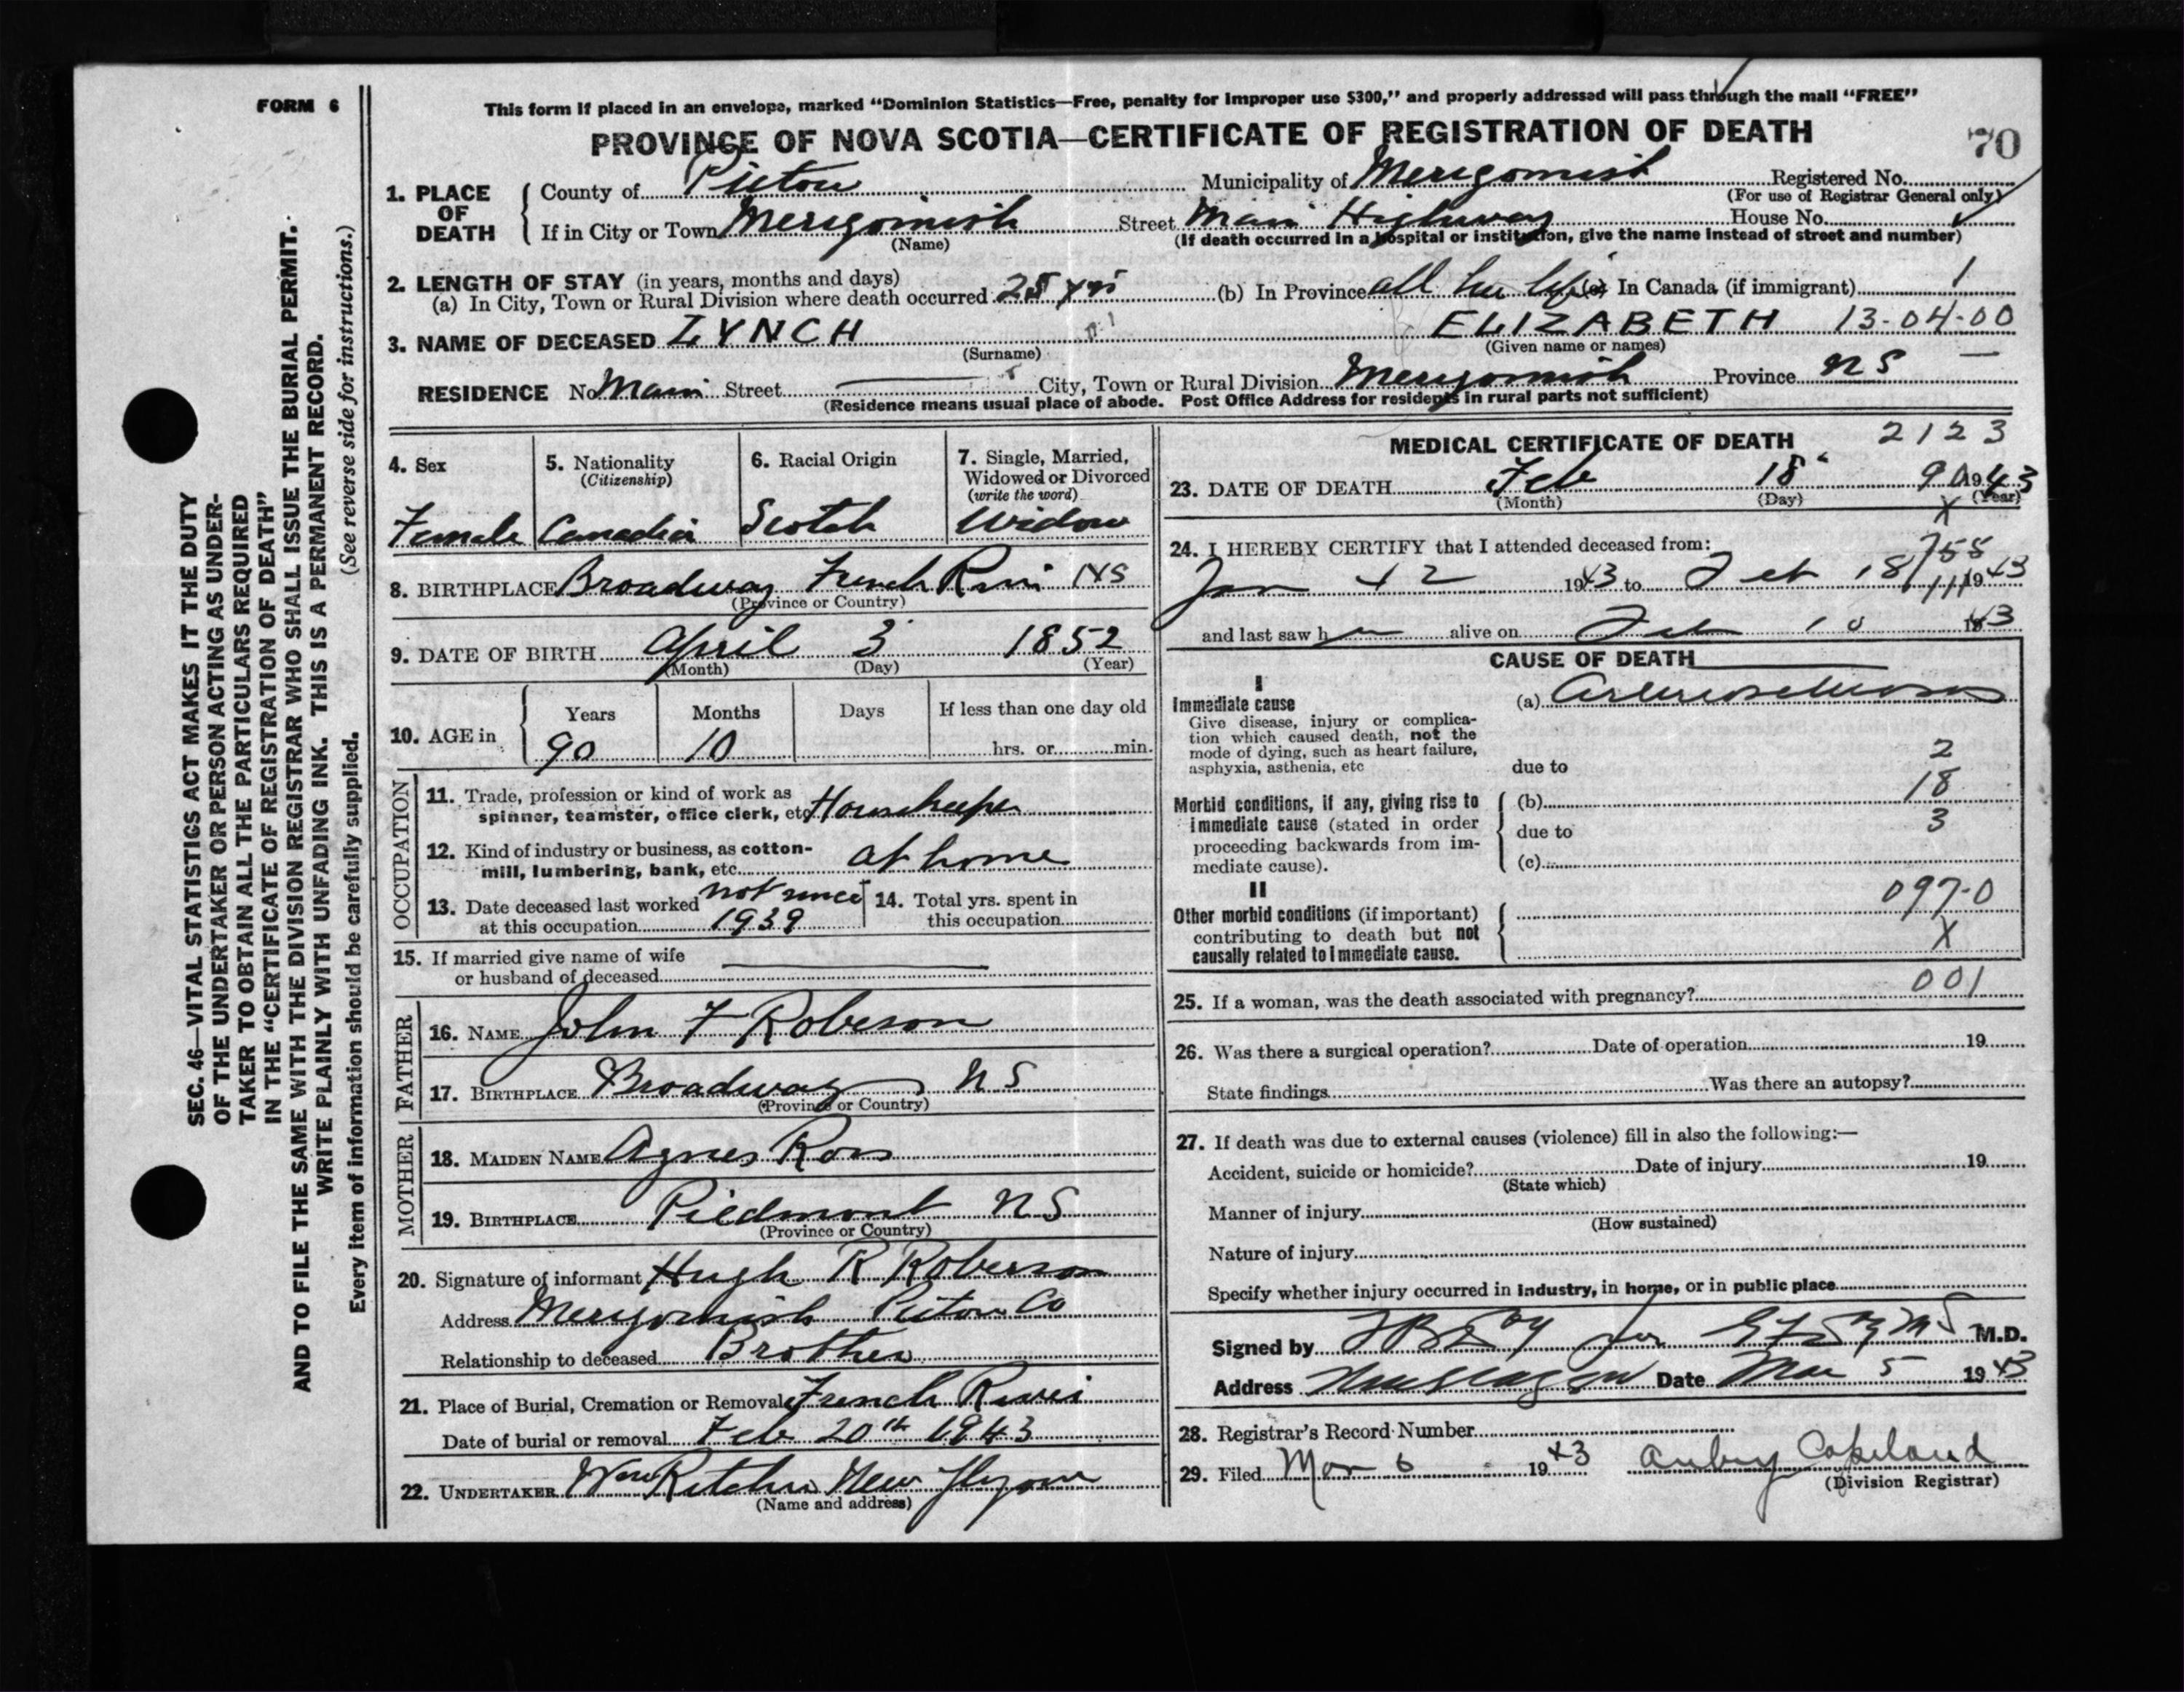 FORM 6
This form if placed in an envelope, marked "Dominion Statistics—Free, penalty for improper use $300," and properly addressed will pass through the mail "FREE"
PROVINCE OF NOVA SCOTIA—CERTIFICATE OF REGISTRATION OF DEATH
70
SEC. 46—VITAL STATISTICS ACT MAKES IT THE DUTY
OF THE UNDERTAKER OR PERSON ACTING AS UNDER-
TAKER TO OBTAIN ALL THE PARTICULARS REQUIRED
IN THE "CERTIFICATE OF REGISTRATION OF DEATH"
AND TO FILE THE SAME WITH THE DIVISION REGISTRAR WHO SHALL ISSUE THE BURIAL PERMIT.
WRITE PLAINLY WITH UNFADING INK. THIS IS A PERMANENT RECORD.
Every item of information should be carefully supplied. (See reverse side for instructions.)
1. PLACE OF DEATH
County of Pictou Municipality of Merigomish Registered No.
(For use of Registrar General only)
If in City or Town Merigomish Street Main Highway House No.
(Name) (If death occurred in a hospital or institution, give the name instead of street and number)
2. LENGTH OF STAY (in years, months and days)
(a) In City, Town or Rural Division where death occurred 25 yrs (b) In Province all her life (c) In Canada (if immigrant) 1
3. NAME OF DECEASED LYNCH ELIZABETH 13-04-00
(Surname) (Given name or names)
RESIDENCE No Main Street City, Town or Rural Division Merigomish Province NS
(Residence means usual place of abode. Post Office Address for residents in rural parts not sufficient)
4. Sex
Female
5. Nationality
(Citizenship)
Canadian
6. Racial Origin
Scotch
7. Single, Married,
Widowed or Divorced
(write the word)
Widow
8. BIRTHPLACE Broadway French River NS
(Province or Country)
9. DATE OF BIRTH April 3 1852
(Month) (Day) (Year)
10. AGE in
Years Months Days If less than one day old
90 10 hrs. or min.
OCCUPATION
11. Trade, profession or kind of work as
spinner, teamster, office clerk, etc Housekeeper
12. Kind of industry or business, as cotton-
mill, lumbering, bank, etc. at home
13. Date deceased last worked not since
at this occupation 1939
14. Total yrs. spent in
this occupation
15. If married give name of wife
or husband of deceased
FATHER
16. NAME John F Roberson
17. BIRTHPLACE Broadway NS
(Province or Country)
MOTHER
18. MAIDEN NAME Agnes Ross
19. BIRTHPLACE Piedmont NS
(Province or Country)
20. Signature of informant Hugh R Roberson
Address Merigomish Pictou Co
Relationship to deceased Brother
21. Place of Burial, Cremation or Removal French River
Date of burial or removal Feb 20th 1943
22. UNDERTAKER Wm Ritchie New Glasgow
(Name and address)
MEDICAL CERTIFICATE OF DEATH 2123
23. DATE OF DEATH Feb 18 90 1943
(Month) (Day) (Year)
X
24. I HEREBY CERTIFY that I attended deceased from:
755
Jan 1943 to Feb 18 1943
111
and last saw her alive on Feb 1943
CAUSE OF DEATH
I
Immediate cause
Give disease, injury or complica-
tion which caused death, not the
mode of dying, such as heart failure,
asphyxia, asthenia, etc
(a) Arteriosclerosis
due to 2
Morbid conditions, if any, giving rise to
immediate cause (stated in order
proceeding backwards from im-
mediate cause).
(b) 18
due to 3
(c)
II
Other morbid conditions (if important)
contributing to death but not
causally related to immediate cause.
097-0
X
25. If a woman, was the death associated with pregnancy? 001
26. Was there a surgical operation? Date of operation 19
State findings Was there an autopsy?
27. If death was due to external causes (violence) fill in also the following:—
Accident, suicide or homicide? Date of injury 19
(State which)
Manner of injury
(How sustained)
Nature of injury
Specify whether injury occurred in industry, in home, or in public place
Signed by for M.D.
Address New Glasgow Date Mar 5 1943
28. Registrar's Record Number
29. Filed Mar 6 1943 Aubrey Copeland
(Division Registrar)